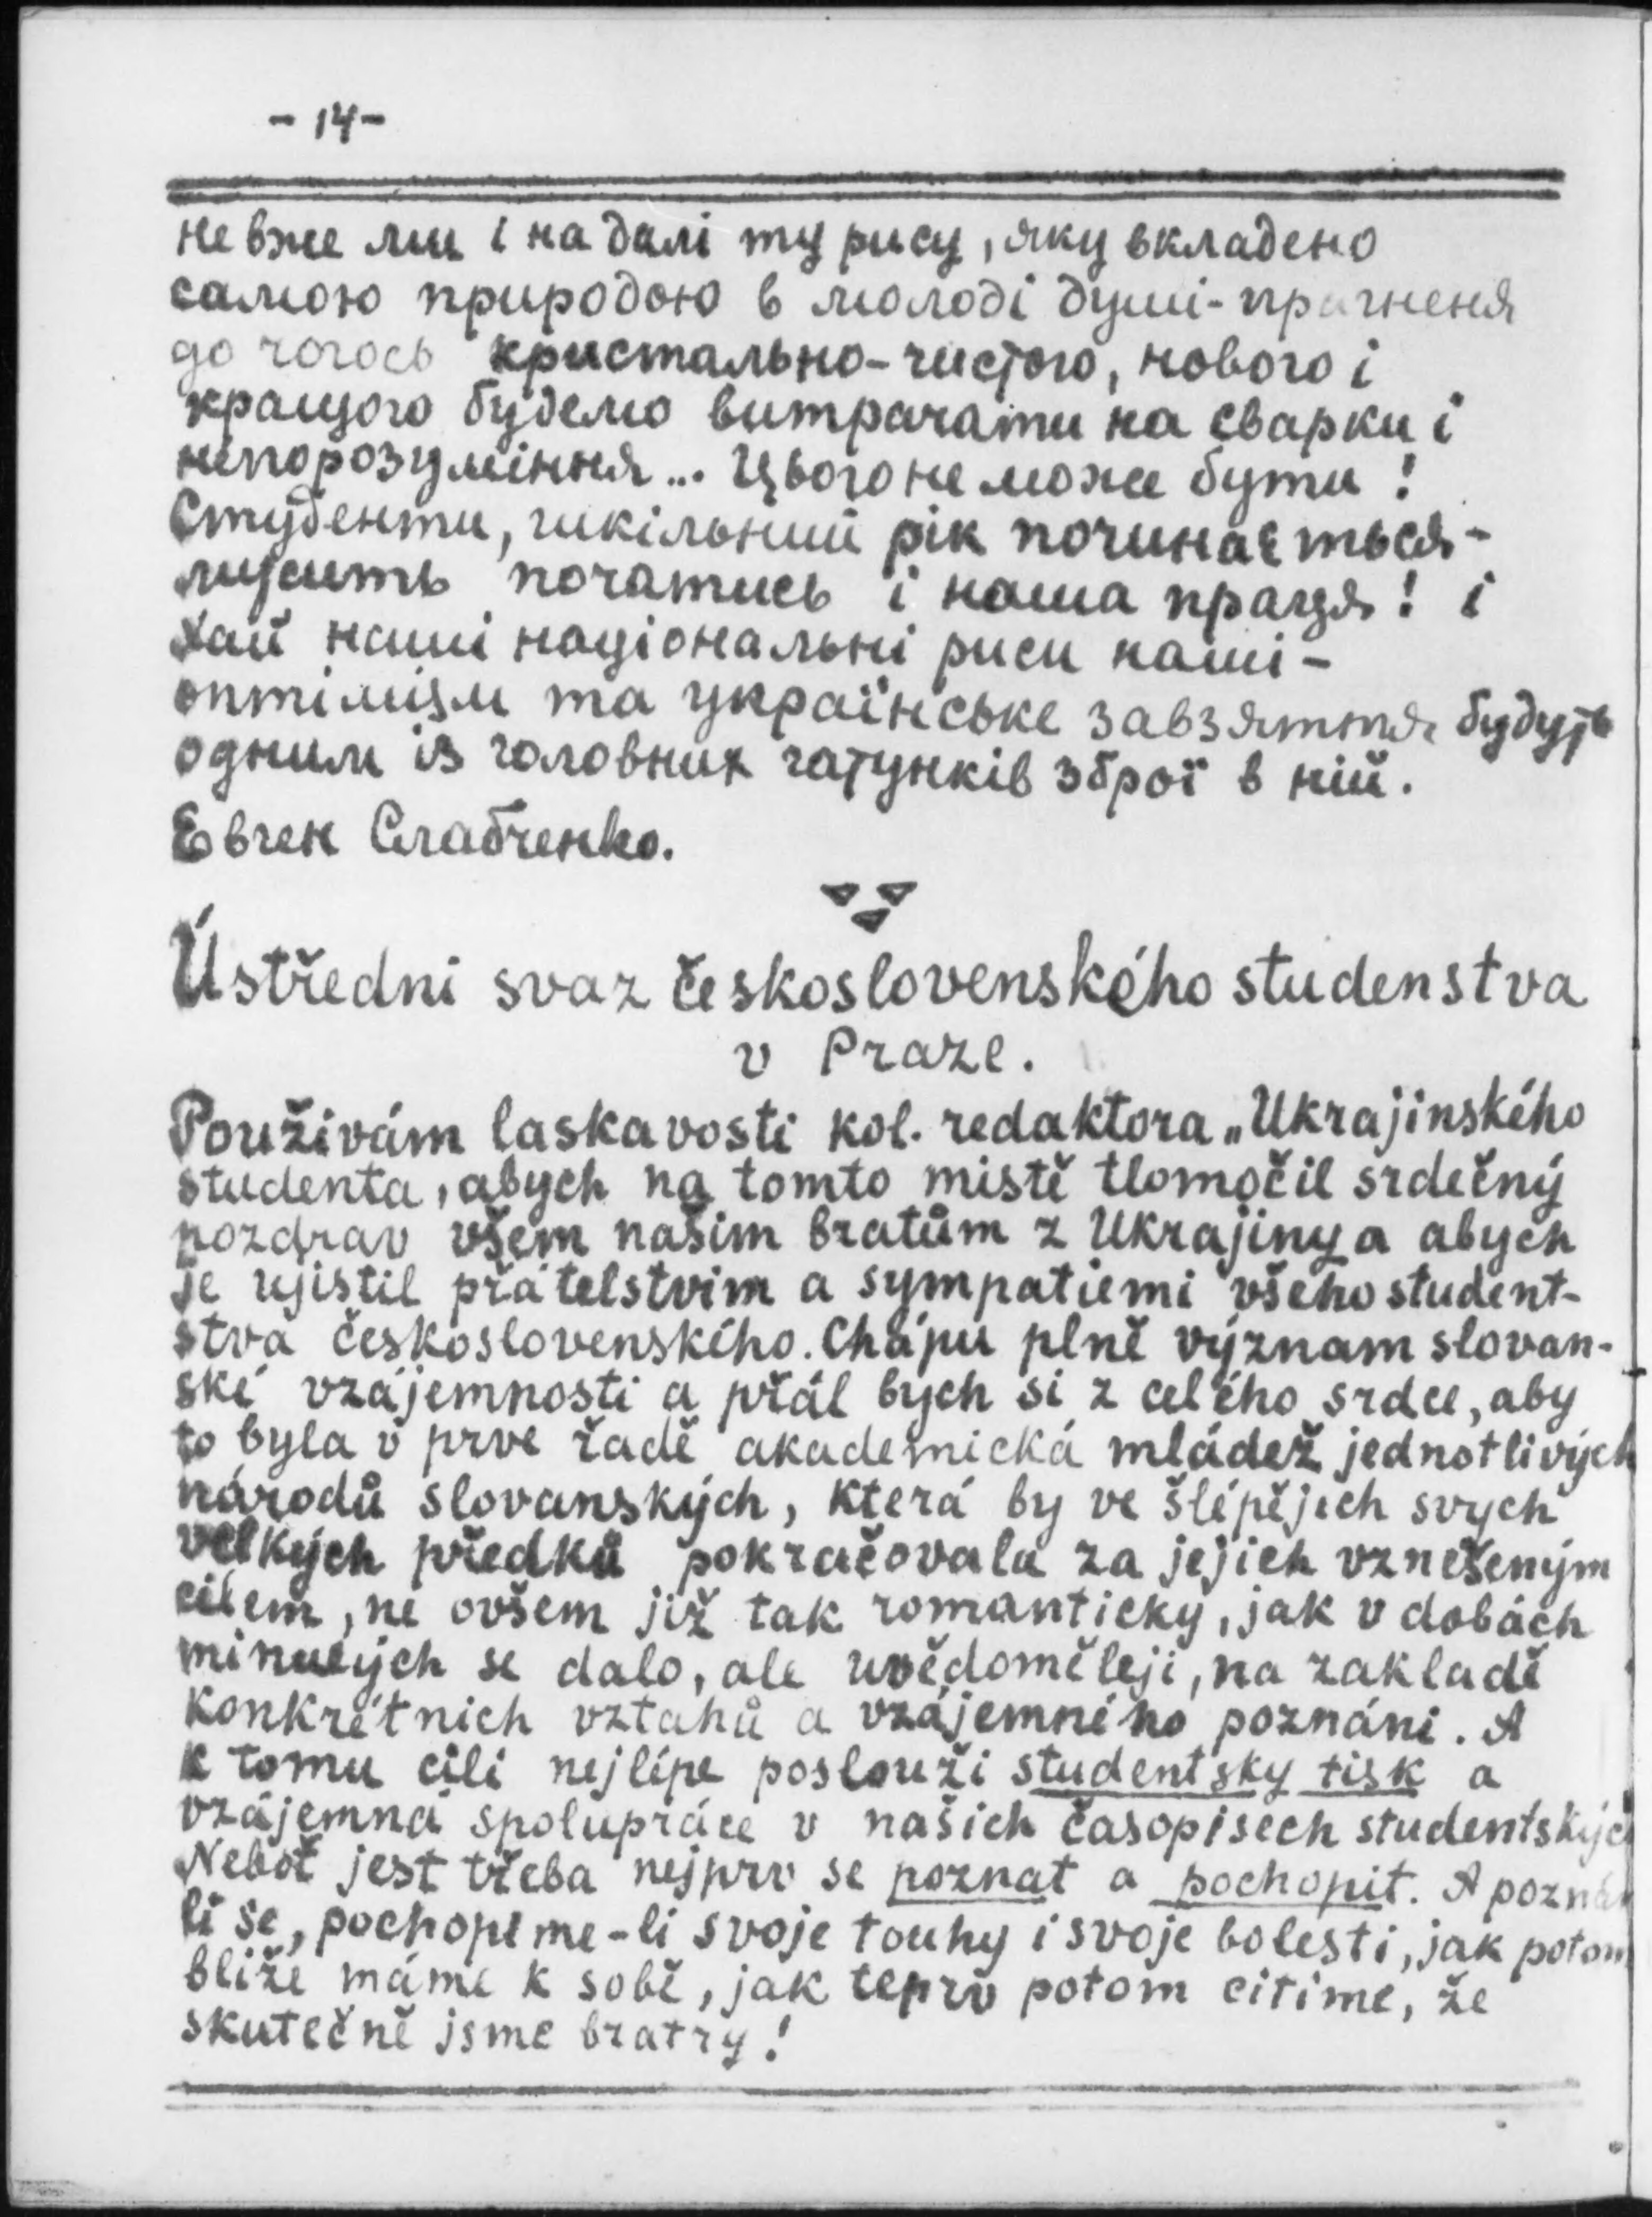 - 14 -
невже ми і на далі ту рису, яку вкладено
самою природою в молоді душі - прагненя
до чогось кристально-чистого, нового і
кращого будемо витрачати на сварки і
непорозуміння... Цього не може бути!
Студенти, шкільний рік починається -
мусить початись і наша праця! і
хай наші національні риси наші -
оптімізм та українське завзяття будуть
одним із головних гатунків зброї в ній.
Евген Слабченко.
Ústředni svaz československého studenstva
v Praze.
Použivám laskavosti kol. redaktora „Ukrajinského
studenta, abych na tomto mistě tlomočil srdečný
pozdrav všem našim bratům z Ukrajiny a abych
je ujistil přátelstvim a sympatiemi všeho student-
stva československího. Chápu plně význam slovan-
ské vzájemnosti a přál bych si z celého srdce, aby
to byla v prve řadě akademická mládež jednotlivých
národů slovanských, která by ve šlépějich svych
velkých předků pokračovala za jejich vznešeným
cilem, ne ovšem již tak romanticky, jak v dobách
minulých se dalo, ale uvědoměleji, na zakladě
konkrétnich vztahů a vzájemného poznáni. A
k tomu cíli nejlípe poslouži studentsky tisk a
vzájemná spolupráce v našich časopisech studentských
Neboť jest třeba nejprv se poznat a pochopit. A pozná
li se, pochopime-li svoje touhy i svoje bolesti, jak potom
bliže máme k sobě, jak teprv potom citime, že
skutečně jsme bratry!